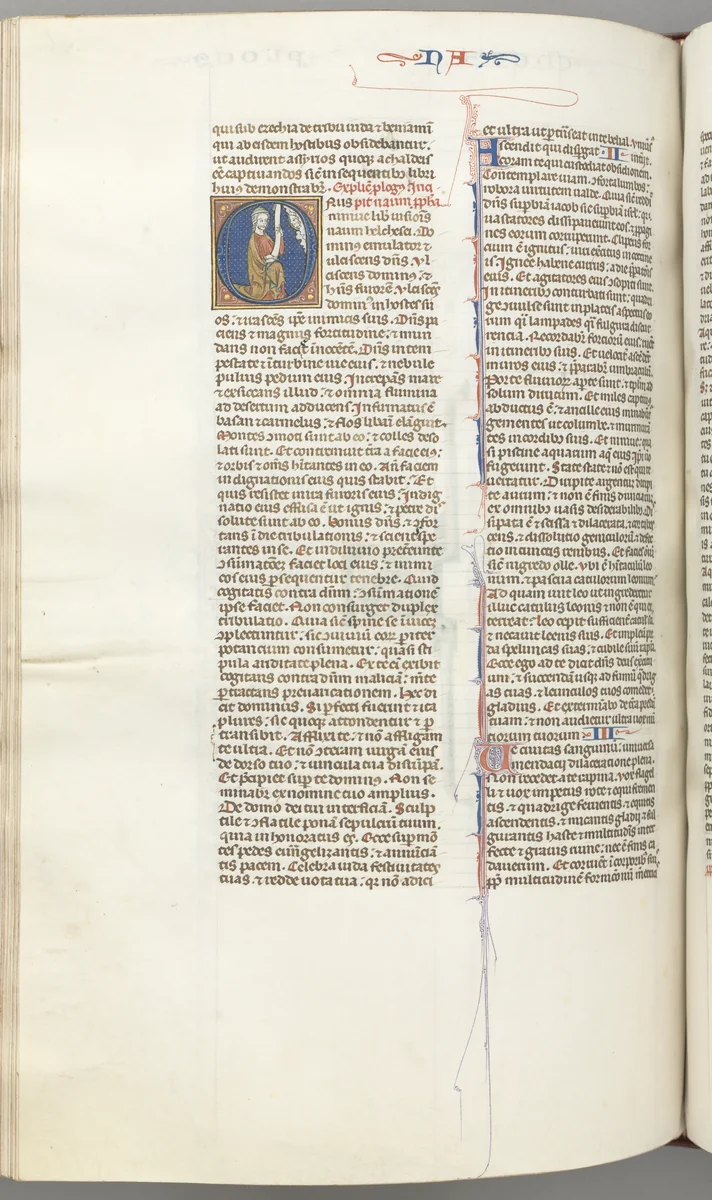 NA
qui sub ezechia de tribu iuda & beniami
qui ab eisdem hostibus obsidebantur.
ut audirent assyrios quoque a chaldeis
huius demonstrabit. Explicit plogus Inci
Onus
niniue lib uisiois
naum helchesei. D
minus emulator &
ulciscens dns. Vl
ciscens dominus: &
hns furore. Vlcisces
domin in hostes su
os: & irascens ipe inimicis suis. Dns pa
ciens & magnus fortitudine: & mun
dans non faciet innocete. Dns in tem
pestate & turbine uie eius. & nebule
puluis pedum eius. Increpans mare
& exsiccans illud: & omnia flumina
ad desertum adducens. Infirmatus e
basan & carmelus: & flos libani elanguit.
Montes comoti sunt ab eo: & colles deso
lati sunt. Et contremuit tra a facie eius:
& orbis & oms hitantes in eo. An faciem
indignationis eius quis stabit. Et
quis resistet in ira furoris eius. Indig
natio eius effusa e ut ignis: & petre dis
solute sunt ab eo. Bonus dns & cofor
tans i die tribulationis: & sciens spe
rantes in se. Et in diluuio pretereunte
cosumatione faciet loci eius: & inimi
cos eius persequentur tenebre. Quid
cogitatis contra dnm: cosumatione
ipse faciet. Non consurget duplex
tribulatio. Quia sic spine se inuice
coplectuntur: sic conuiuiu eor pariter
potantium consumetur: quasi sti
pula ariditate plena. Ex te exibit
cogitans contra dnm malicia: mte
ptractans preuaricationem. Hec di
cit dominus. Si pfecti fuerint & ita
plures: sic quoque attondentur & p
transibit. Afflixi te: & no affligam
te ultra. Et nunc coteram uirgam eius
de dorso tuo: & uincula tua disrupa.
Et pcipiet sup te dominus. Non se
minabit ex nomine tuo amplius.
De domo dei tui interficiam. Sculp
tile & conflatile ponam sepulcru tuum.
quia inhonoratus es. Ecce sup mo
tes pedes euangelizantis: & annuncia
tis pacem. Celebra iuda festiuitates
tuas: & redde uota tua: qr non adici
et ultra ut ptranseat in te belial.
Ascendit qui dispergat II
coram te qui custodiat obsidionem.
Contemplare uiam. coforta lumbos:
robora uirtutem ualde. Quia sic reddidit
dns supbiam iacob sic supbiam isrl: qr
uastatores dissipauerunt eos: & ppagi
nes eorum corruperunt.
eius. Et agitatores eius cosopiti sunt.
In itineribus conturbati sunt: quadri
ge collise sunt in plateis.
rum qi lampades qi fulgura discur
rencia. Recordabit fortium suor.
in itineribus suis. Et uelociter ascendent
muros eius: & pparabit umbraculu.
Porte fluuior aperte sunt: & templu ad
solum dirutum. Et miles captiuus
abductus e: & ancille eius minabantur
gementes ut columbe: & murmuran
tes in cordibus suis. Et niniue: qua
si piscine aquarum aque eius: ipsi uero
fugerunt. State state: & non est qui re
uertatur. Diripite argentum diripi
te aurum: & non e finis diuitiarum:
ex omnibus uasis desiderabilibus. Dis
sipata e & scissa & dilacerata. & cor tabes
cens: & dissolutio geniculorum: & defec
tio in cunctis renibus. Et facies oium
sic nigredo olle. Vbi e hitaculu leo
num: & pascua catulorum leonum:
Ad quam iuit leo ut ingrederetur
illuc catulus leonis & non e qui ex
terreat: leo cepit sufficienter catulis suis:
& necauit leenis suis. Et impleuit preda
speluncas suas: & cubile suum rapina.
Ecce ego ad te dicit dns deus exercitu
um: & succendam usque ad fumum quadrig
as tuas: & leunculos tuos comedet
gladius. Et exterminabo de tra preda
tuam: & non audietur ultra uox nun
tiorum tuorum III
Ve ciuitas sanguinu: uniuersa
mendacii dilaceratione plena.
Non recedet a te rapina. Vox flagel
li & uox impetus rote & equi fremen
tis. & quadrige feruentis: & equitis
ascendentis. & micantis gladii & ful
gurantis haste & multitudinis inter
fecte & grauis ruine: nec e finis ca
dauerum. Et corruent i corporibus suis
pp multitudine fornicationu meretricis